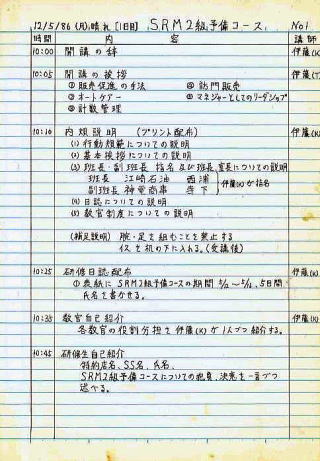 12/5/86 (月) 晴れ [1日目] SRM2級予備コース No1
時間 内容 講師
10:00 開講の辞 伊藤(K)
10:05 開講の挨拶 伊藤(T)
①販売促進の手法 ④訪問販売
②オートケアー ⑤マネジャーとしてのリーダシップ
③計数管理
10:10 内規説明 (プリント配布) 伊藤(K)
(1) 行動規範についての説明
(2) 基本挨拶についての説明
(3) 班長・副班長 指名及び班長、室長についての説明
班長 江崎石油 西浦
副班長 神電商事 寺下
伊藤(K)が指名
(4) 日誌についての説明
(5) 教官制度についての説明
(補足説明) 腕・足を組むことを禁止する
イスを机の下に入れる。(受講後)
10:25 研修日誌配布 伊藤(K)
①表紙にSRM2級予備コースの期間 5/12〜5/16、5日間、
氏名を書かせる。
10:35 教官自己紹介 伊藤(K)
各教官の役割分担を伊藤(K)が1人づつ紹介する。
10:45 研修生自己紹介
特約店名、SS名、氏名、
SRM2級予備コースについての抱負、決意を一言づつ
述べる。